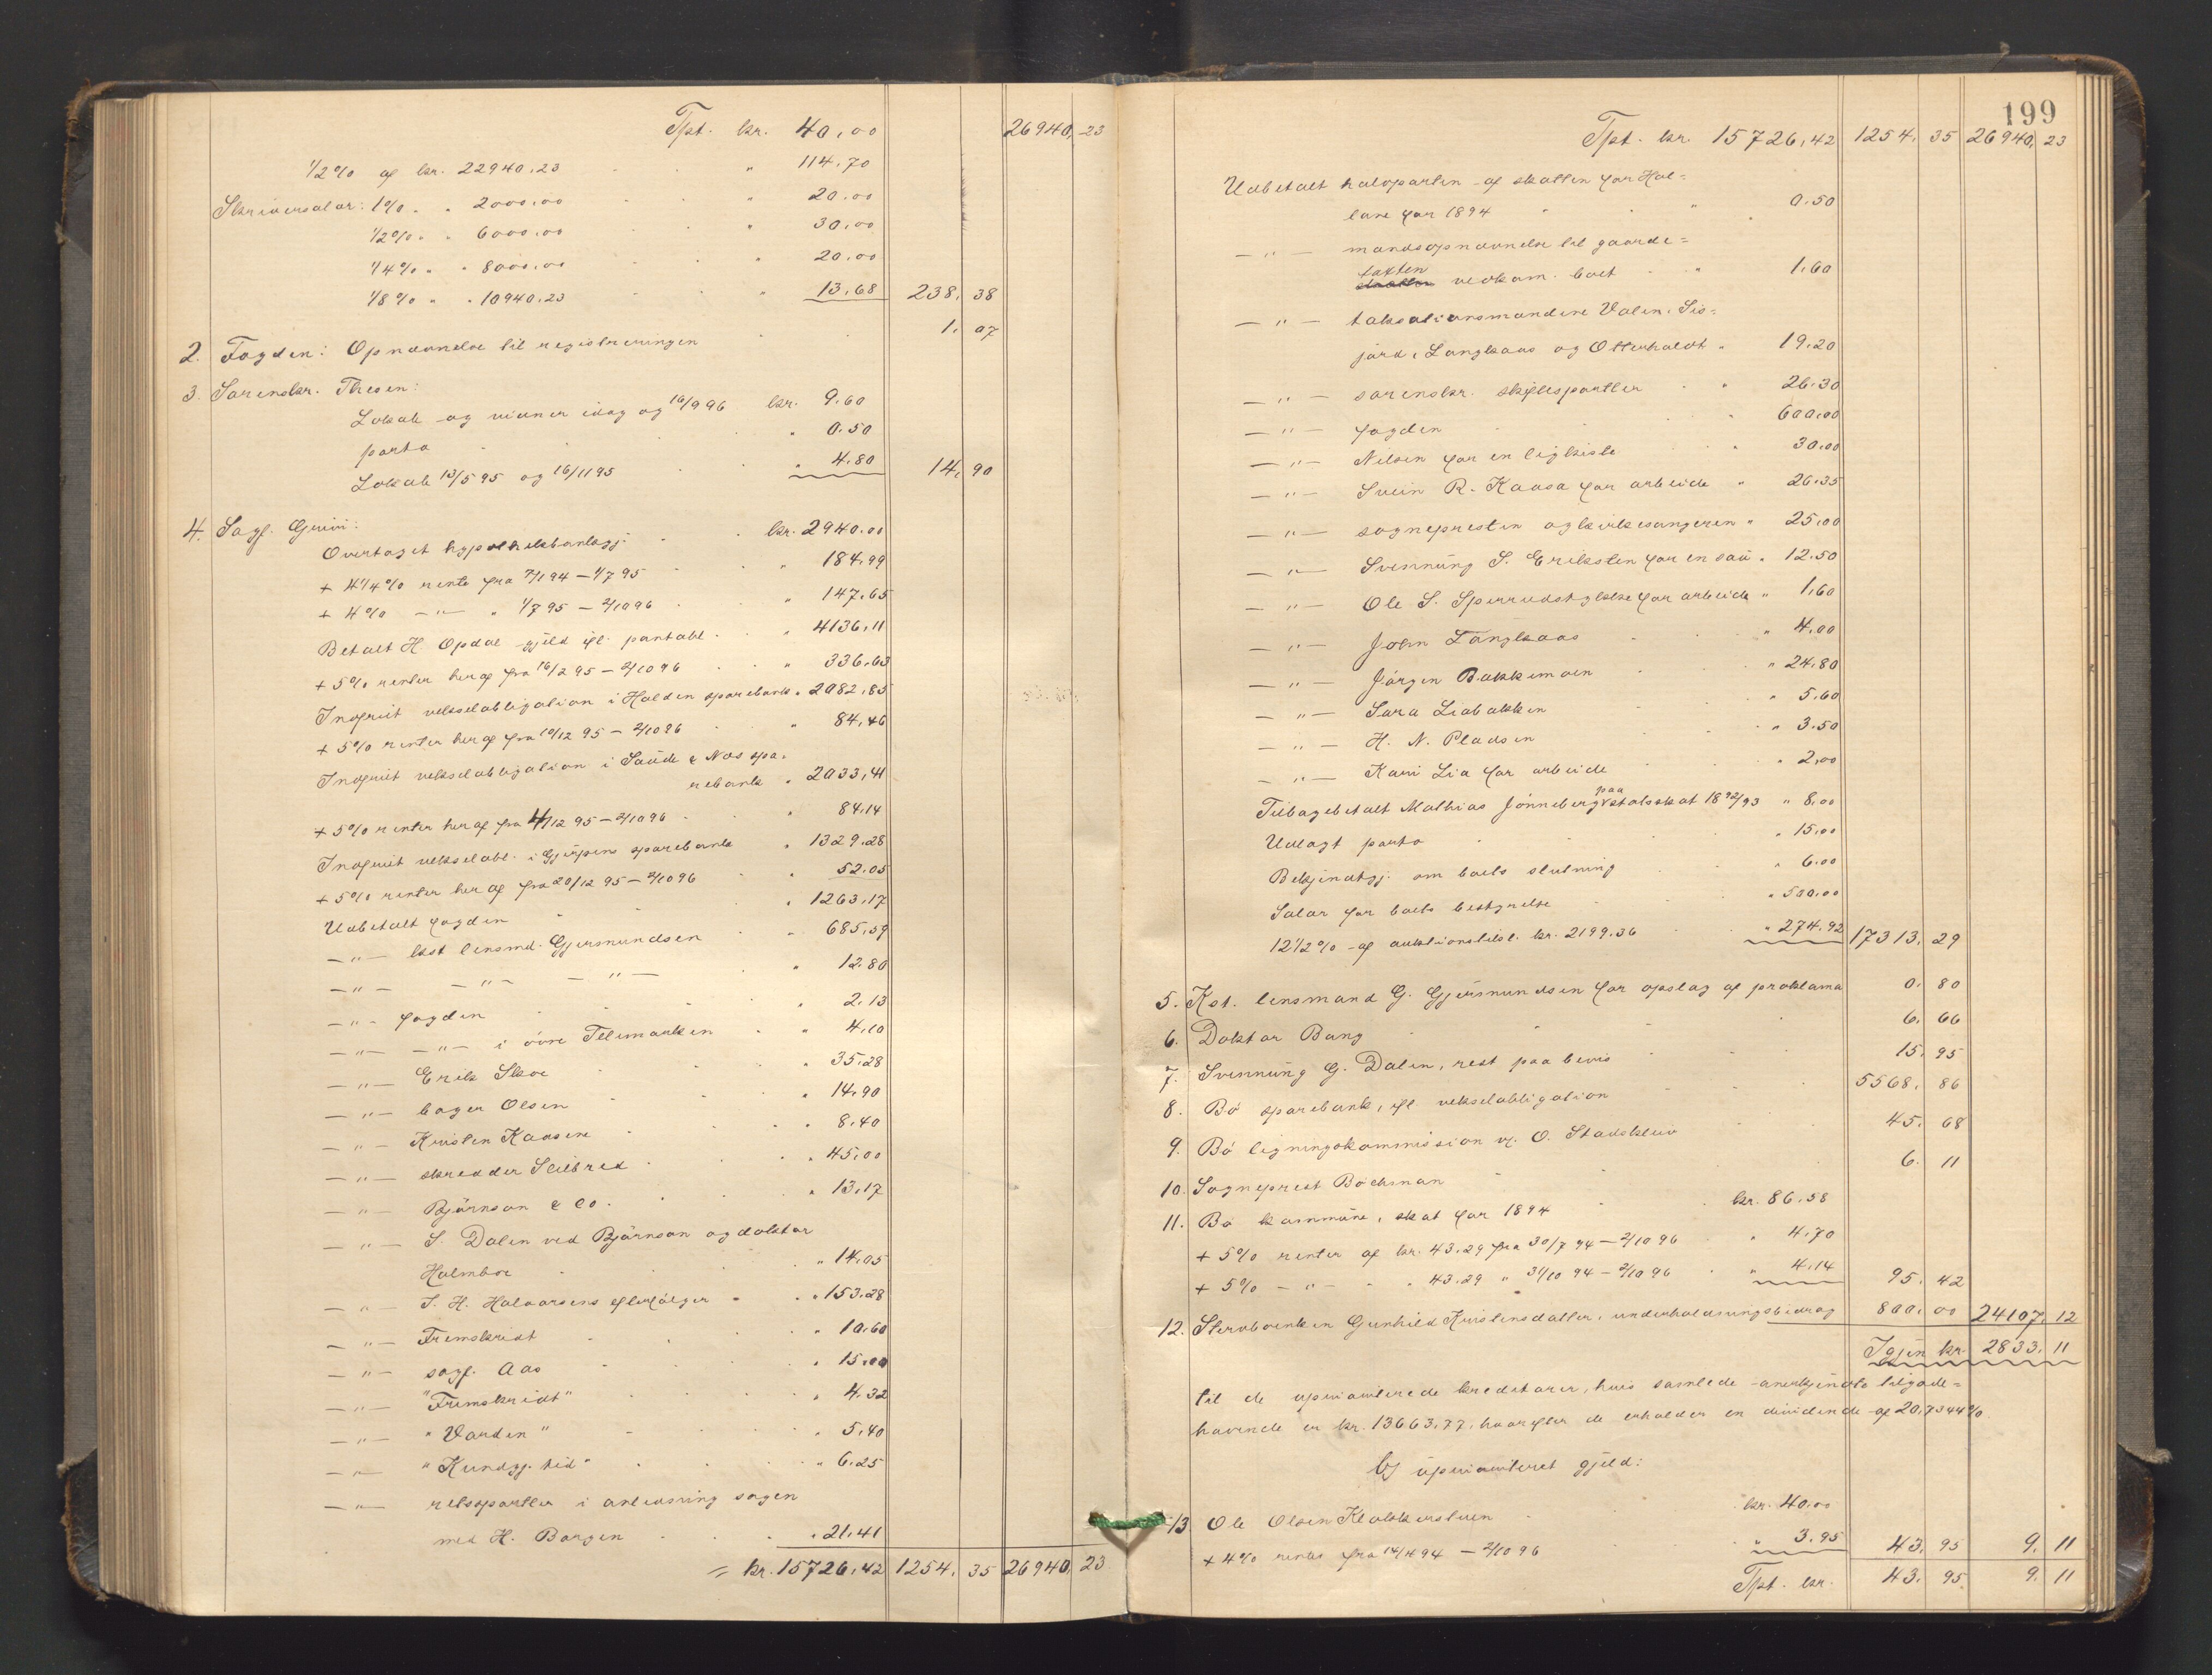 Tpt. kr. 40.00 26940,23
1/2% af kr. 22940.23 " 114.70
Skriversalar: 1% " " 2000.00 " 20.00
1/2% " " 6000.00 " 30.00
1/4% " " 8000.00 " 20.00
1/8% " " 10940.23 " 13.68 238,38
2. Fogden: Opnævnelse til registreringen 1,07
3. Sorenskr. Thesen:
Lokale og vidner idag og 16/9 96 kr. 9.60
porto " 0.50
Lokale 13/5 95 og 16/11 95 " 4.80 14,90
4. Sagf. Grivi:
Overtaget hypothekbanlagj. kr. 2940.00
+ 4 1/4% rente fra 7/1 94 – 1/7 95 " 184.99
+ 4% –"– " 1/7 95 – 2/10 96 " 147.65
Betalt H. Opdal gjeld ifl. pantobl. " 4136,11
+ 5% renter heraf fra 16/2 95 – 2/10 96 " 336.63
Indfriet vekselobligation i Holden sparebank " 2082.85
+ 5% renter heraf fra 10/12 95 – 2/10 96 " 84,46
Indfriet vekselobligation i Saude & Nes spa-
rebank " 2033,41
+ 5% renter heraf fra 4/12 95 – 2/10 96 " 84.14
Indfriet vekselobl. i Gjerpens sparebank " 1329.28
+ 5% renter heraf fra 20/12 95 – 2/10 96 " 52.05
Udbetalt fogden " 1263,17
–"– kst lensmd. Gjermundsen " 685,59
–"– –"– –"– " 12.80
–"– fogden " 2.13
–"– –"– i övre Telemarken " 4.10
–"– Erik Skoe " 35.28
–"– bager Olsen " 14.90
–"– Kristen Kaasene " 8.40
–"– skredder Slibred " 45,00
–"– Björnson & Co. " 13,17
–"– S. Dalen ved Björnson og doktor
Holmboe " 14,05
–"– J. H. Halvorsens efterfölger " 153.28
–"– Fremskridt " 10.60
–"– sagf. Aas " 15.00
–"– "Fremskridt" " 4.32
–"– "Varden" " 5.40
–"– "Kundgj. tid" " 6.25
–"– retsgebyrer i anledning sagen
med H. Borgen " 21.41
= kr. 15726,42 1254,35 26940,23
199
Tpt. kr. 15726,42 1254,35 26940,23
Udbetalt halvparten af skatten for Hol-
lane for 1894 " 0.50
–"– mandsopnævnelse til gaarde-
taxten vedkom. boet " 1.60
–"– taksationsmændene Valen, Sis-
jord, Langkaas og Otterholdt " 19.20
–"– sorenskr. skiftesportler " 26.30
–"– fogden " 600,00
–"– Nilsen for en ligkiste " 30.00
–"– Svein R. Kaasa for arbeide " 26.35
–"– sogneprestin og kirkesangeren " 25,00
–"– Svennung S. Eriksten for en sau " 12.50
–"– Ole S. Sperrudstykket for arbeide " 1,60
–"– John Langkaas " 4.00
–"– Jörgen Bakkemoen " 24.80
–"– Sara Liabakken " 5.60
–"– H. N. Pladsen " 3.50
–"– Kari Lia for arbeide " 2,00
Tilbagebetalt Mathias Jönneberg paa statsskat 1892/93 " 8,00
Udlagt porto " 15,00
Bekjendtgj. om boets slutning " 6.00
Salar for boets bestyrelse " 500,00
12 1/2% af auktionstilsl. kr. 2199.36 " 274.92 17313,29
5. Kst. lensmand G. Gjermundsen for opslag af proklama 0,80
6. Doktor Bang 6,66
7. Svennung G. Dalen, rest paa bevis 15,95
8. Bö sparebank, ifl vekselobligation 5568,86
9. Bö ligningskommission v. O. Stadskleiv 45,68
10. Sogneprest Bockman 6,11
11. Bö kommune, skat for 1894 kr. 86.58
+ 5% renter af kr. 43.29 fra 30/7 94 – 2/10 96 " 4.70
+ 5% –"– " 43.29 " 31/10 94 – 2/10 96 " 4.14 95,42
12. Stervboenken Gunhild Kristensdatter, underholdningsbidrag 800,00 24107,12
Igjen kr. 2833,11
til de uprivilerede kreditorer, hvis samlede anerkjendte tilgode-
havende er kr. 13663.77, hvorefter de erholder en dividende af 20,7344%.
b) uprivileret gjeld:
13. Ole Olsen Klokkerstuen kr. 40.00
+ 4% renter fra 14/4 94 – 2/10 96 " 3.95 43,95 9,11
Tpt. kr. 43,95 9,11